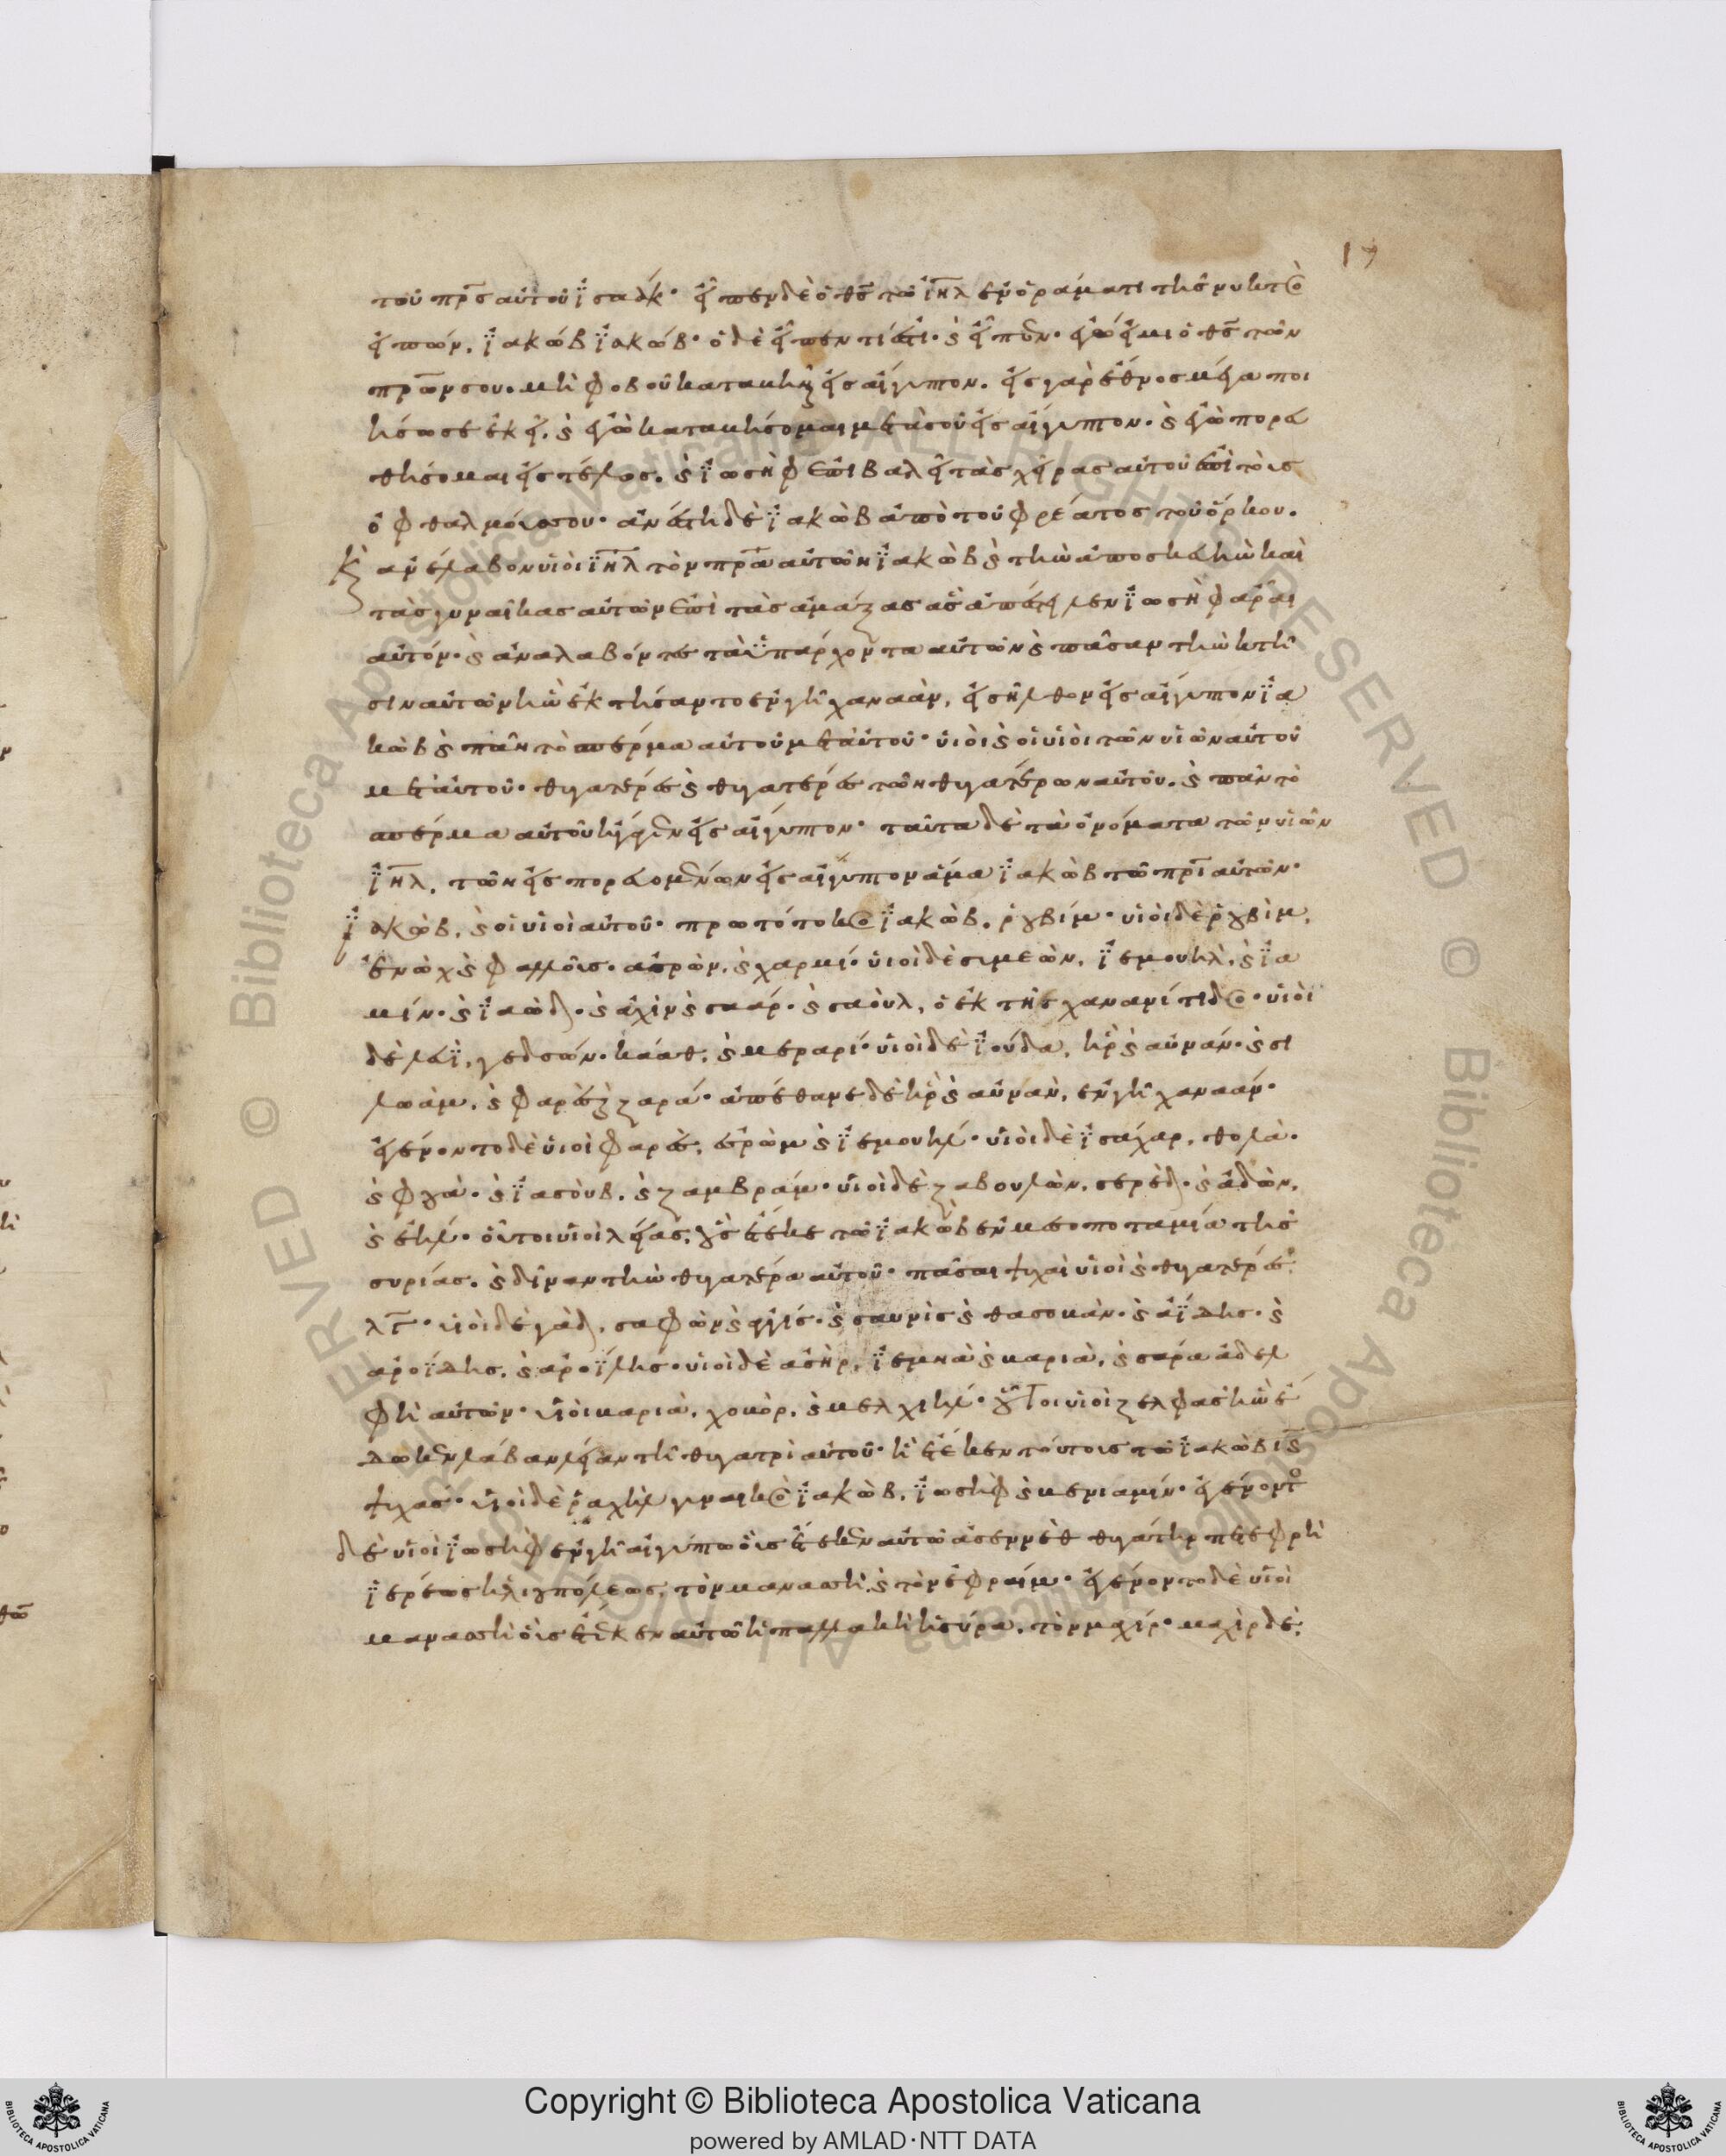 17
τοῦ πρ̅ς αὐτοῦ ϊσαάκ· εἶπεν δὲ ὁ θ̅ς τῶ ϊ̅η̅λ̅ ἐν ὁράματι τῆς νυκτὸς
εἰπών, ϊακώβ ϊακώβ· ὁ δὲ εἶπεν τί ἐστι· καὶ εἶπεν· ἐγώ εἰμι ὁ θ̅ς τῶν
πρ̅ων σου. μὴ φοβοῦ καταβῆναι εἰς αἴγυπτον. εἰς γὰρ ἔθνος μέγα ποι
ήσω σε ἐκεῖ. καὶ ἐγὼ καταβήσομαι μετὰ σοῦ εἰς αἴγυπτον. καὶ ἐγὼ πορευ
θήσομαι εἰς τέλος. καὶ ϊωσὴφ ἐπιβαλεῖ τὰς χεῖρας αὐτοῦ ἐπὶ τοὺς
ὀφθαλμούς σου· ἀνέστη δὲ ϊακὼβ ἀπὸ τοῦ φρέατος τοῦ ὅρκου.
καὶ ἀνέλαβον υἱοὶ ϊ̅η̅λ̅ τὸν πρ̅α αὐτῶν ϊακὼβ καὶ τὴν ἀποσκευὴν καὶ
τὰς γυναῖκας αὐτῶν ἐπὶ τὰς ἁμάξας ἃς ἀπέστειλεν ϊωσὴφ ἆραι
αὐτόν· καὶ ἀναλαβόντες τὰ ὑπάρχοντα αὐτῶν καὶ πᾶσαν τὴν κτῆ
σιν αὐτῶν ἣν ἐκτήσαντο ἐν γῆ χαναάν, εἰσῆλθον εἰς αἴγυπτον ϊα
κὼβ καὶ πᾶν τὸ σπέρμα αὐτοῦ μετ' αὐτοῦ· υἱοὶ καὶ οἱ υἱοὶ τῶν υἱῶν αὐτοῦ
μετ' αὐτοῦ· θυγατέρες καὶ θυγατέρες τῶν θυγατέρων αὐτοῦ. καὶ πᾶν τὸ
σπέρμα αὐτοῦ ἤγαγεν εἰς αἴγυπτον· ταῦτα δὲ τὰ ὀνόματα τῶν υἱῶν
ϊ̅η̅λ̅, τῶν εἰσπορευομένων εἰς αἴγυπτον ἅμα ϊακὼβ τῶ πρ̅ι αὐτῶν·
ϊακὼβ, καὶ οἱ υἱοὶ αὐτοῦ· πρωτότοκος ϊακὼβ, ῥουβίμ· υἱοὶ δὲ ῥουβὶμ,
ἐνὼχ καὶ φαλλοῖς· ἀσρὼν, καὶ χαρμί· υἱοὶ δὲ σιμεὼν, ϊεμουὴλ, καὶ ϊα
μίν· καὶ ϊαὼδ· καὶ ἀχὶν καὶ σαάρ· καὶ σαοὺλ, ὁ ἐκ τῆς χανανίτιδος· υἱοὶ
δὲ λευΐ, γεδσών· καάθ, καὶ μεραρί· υἱοὶ δὲ ϊούδα, ἢρ καὶ αὐνάν· καὶ ση
λωὰμ, καὶ φαρὲς καὶ ζαρά· ἀπέθανε δὲ ἢρ καὶ αὐνὰν, ἐν γῆ χαναάν·
ἐγένοντο δὲ υἱοὶ φαρὲς, ἐσρὼμ καὶ ϊεμουήλ· υἱοὶ δὲ ϊσάχαρ, θολὰ·
καὶ φουὰ· καὶ ϊασοὺβ, καὶ ζαμβράμ· υἱοὶ δὲ ζαβουλὼν, σερέδ· καὶ ἀλὼν,
καὶ ἐήλ· οὗτοι υἱοὶ λείας, οὓς ἔτεκε τῶ ϊακὼβ ἐν μεσοποταμία τῆς
συρίας. καὶ δῖναν τὴν θυγατέρα αὐτοῦ· πᾶσαι ψυχαὶ υἱοὶ καὶ θυγατέρες,
λ̅γ̅· υἱοὶ δὲ γὰδ, σαφὼν καὶ
ἀροΐδης, καὶ ἀροϊλης· υἱοὶ δὲ ἀσὴρ, ϊεμνὰ καὶ βαριὰ, καὶ σάρα ἀδελ
φὴ αὐτῶν· υἱοὶ βαριὰ, χοβὸρ, καὶ μελχιήλ· οὗτοι υἱοὶ ζελφὰς ἣν ἔ
δωκεν λάβαν λείαν τῆ θυγατρὶ αὐτοῦ· ἣ ἔτεκεν τούτους τῶ ϊακὼβ ι̅ς̅
ψυχάς· υἱοὶ δὲ ῥαχὴλ γυναικὸς ϊακὼβ, ϊωσὴφ καὶ βενιαμίν· ἐγένοντο
δὲ υἱοὶ ϊωσὴφ ἐν γῆ αἰγύπτω οὓς ἔτεκεν αὐτῶ ἀσεννὲθ θυγάτηρ πετεφρῆ
ϊερέως ἡλιουπόλεως, τὸν μανασσῆ, καὶ τὸν ἐφραίμ· ἐγένοντο δὲ υἱοὶ
μανασσῆ οὓς ἔτεκεν αὐτῶ ἡ παλλακὴ ἡ σύρα, τὸν μαχίρ· μαχὶρ δὲ,
Copyright © Biblioteca Apostolica Vaticana
powered by AMLAD·NTT DATA